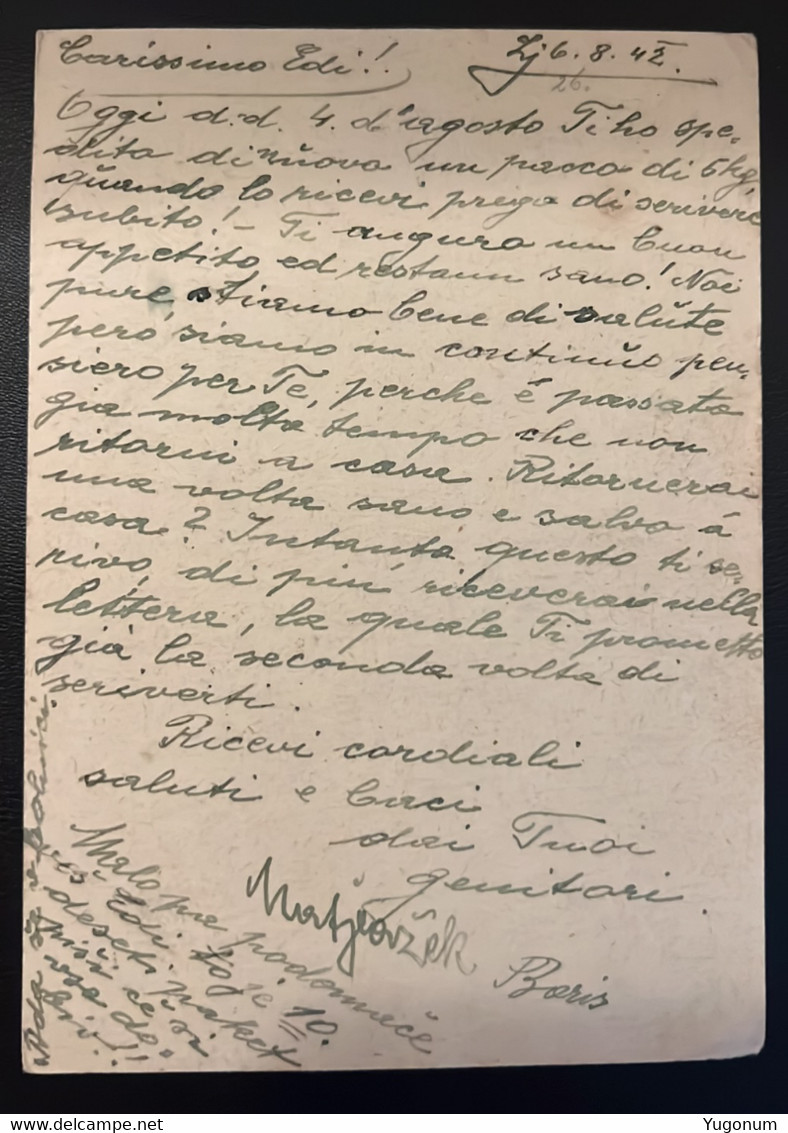 Carissimo Edi!. Lj 6. 8. 42.
26.
Oggi d. d. 4. d'agosto Ti ho spe-
dito di nuovo un pacco di 5 kg,
quando lo ricevi prego di scrivere
subito! - Ti auguro un buon
appetito ed restami sano! Noi
pure, stiamo bene di salŭte
peró siamo in continŭo pen-
siero per Te, perche é passato
gia molto tempo che non
ritorni a casa. Ritornerai
una volta sano e salvo á
casa? Intanto questo ti scri-
vo, di piú riceverai nella
lettera, la quale Ti prometto
giá la seconda volta di
scriverti.
Ricevi cordiali
saluti e baci
dai Tuoi
genitori.
Matj Božek
Boris
Malo po podomače
veš Edi to je 10.
deseti paket
piši če si
vse do-
bil!!
Ada še v bolnici.
delcampe.net
Yugonum